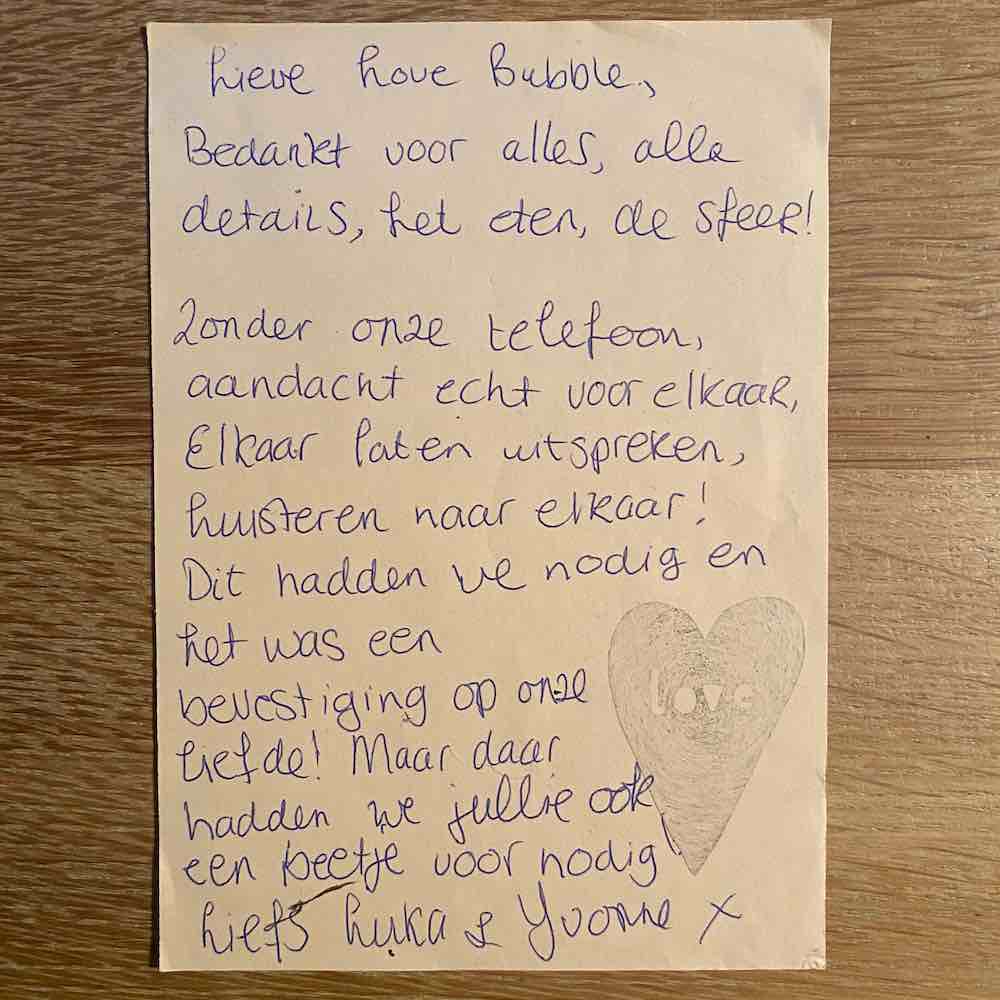 Lieve Love Bubble,
Bedankt voor alles, alle
details, het eten, de sfeer!
Zonder onze telefoon,
aandacht echt voor elkaar,
Elkaar laten uitspreken,
luisteren naar elkaar!
Dit hadden we nodig en
het was een
bevestiging op onze
liefde! Maar daar
hadden we jullie ook
een beetje voor nodig
Liefs Luka & Yvonne x
love